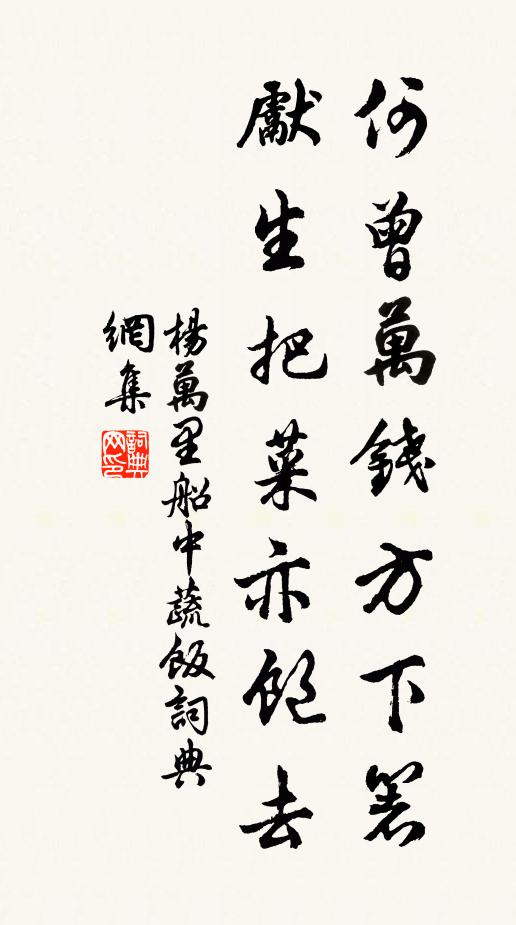 何曾萬錢方下箸
獻生把菜亦飽去
楊萬里船中蔬飯詞典
網集
詞典網印